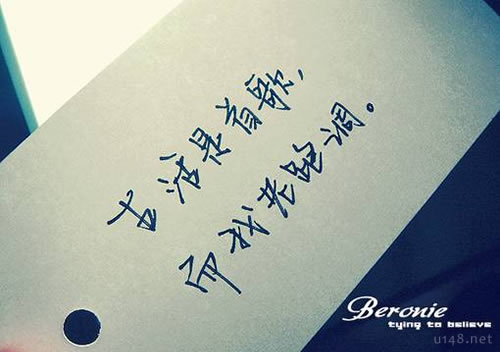 生活是首歌，
而我老跑调。
Beronie
trying to believe
u148.net